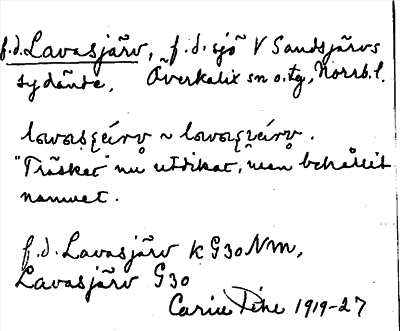 f.d. Lavasjärv, f.d. sjö V Sandsjärvs
sydände, Överkalix sn o. tg, Norrb.l.
"Träsket" nu utdikat, men behållit
namnet.
f.d. Lavasjärv K G30 NM,
Lavasjärv G30
Carin Pihl 1919-27